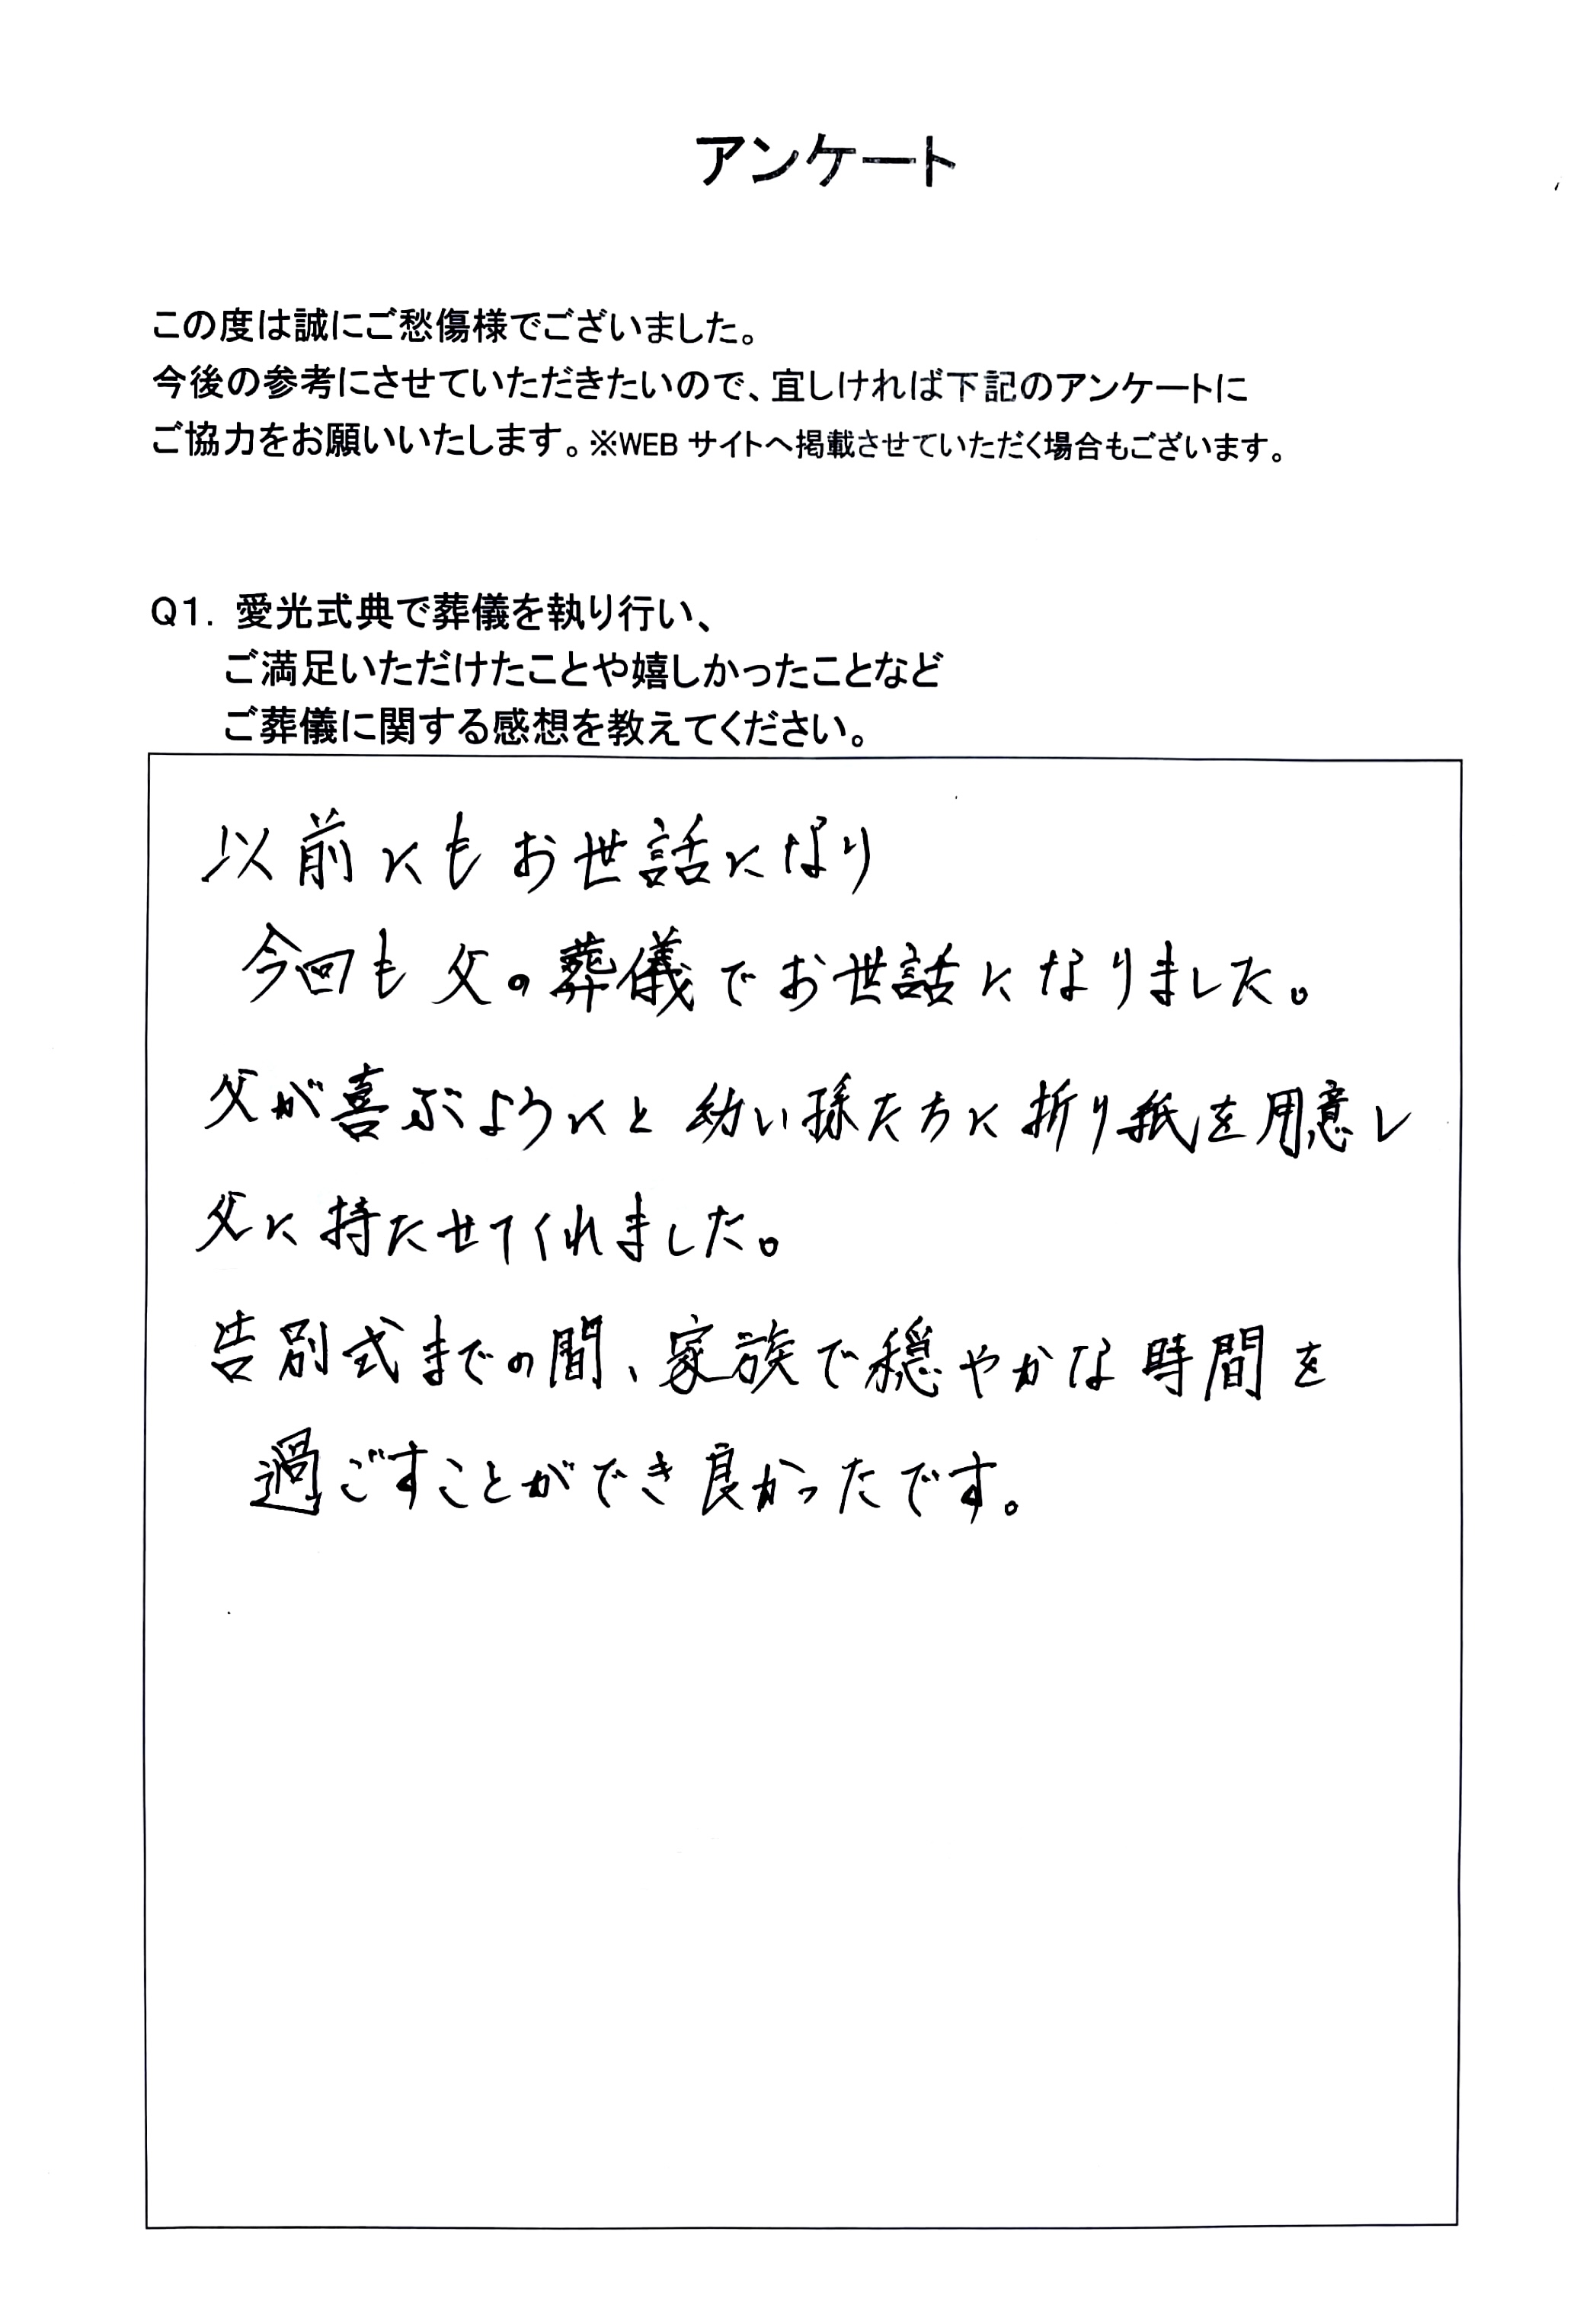 アンケート
この度は誠にご愁傷様でございました。
今後の参考にさせていただきたいので、宜しければ下記のアンケートに
ご協力をお願いいたします。※WEB サイトへ掲載させていただく場合もございます。
Q1. 愛光式典で葬儀を執り行い、
ご満足いただけたことや嬉しかったことなど
ご葬儀に関する感想を教えてください。
以前にもお世話になり
今回も父の葬儀でお世話になりました。
父が喜ぶようにと幼い孫たちに折り紙を用意し
父に持たせてくれました。
告別式までの間、家族で穏やかな時間を
過ごすことができ良かったです。